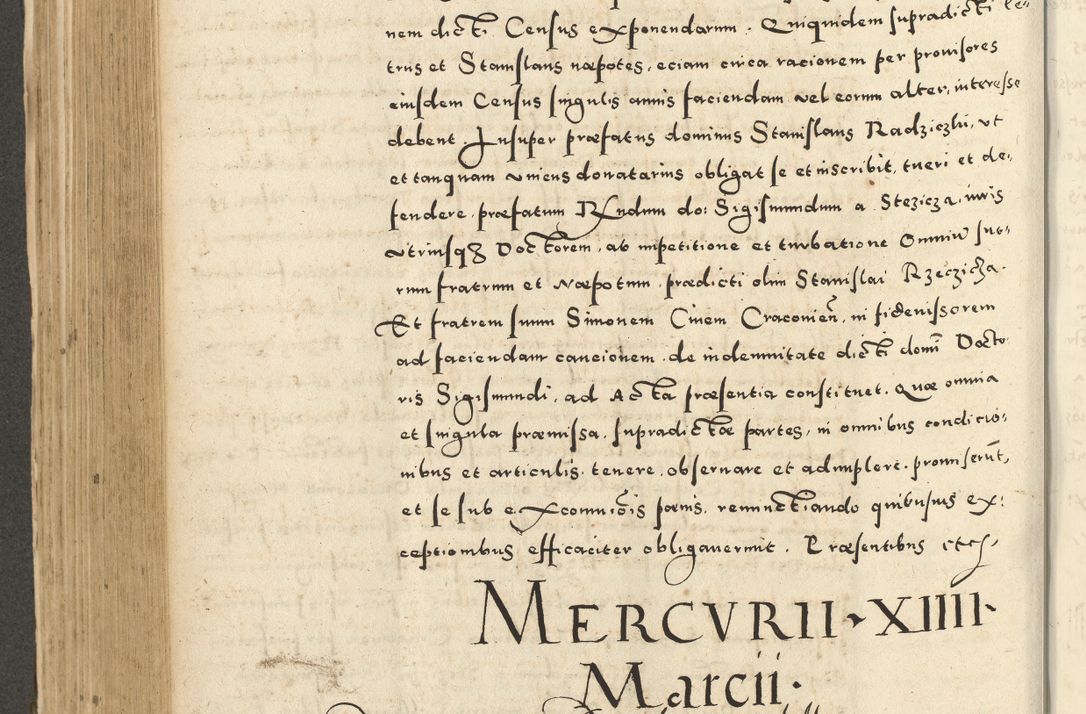 nem dicti Census exponendarum. Quiquidem supradicti
trus et Stanislaus næpotes, eciam circa racionem per prouisores
eiusdem Census singulis annis faciendam vel eorum alter, interesse
debent. Insuper præfatus dominus Stanislaus Radziczki, vt
et tanquam vniens donatarius obligat se et inscribit, tueri et de:
fendere, præfatum Rndum do: Sigismundum a Stezicza, iuris
vtriusqȝ Doctorem, ab impetitione et turbatione Omniū suo:
rum fratrum et Næpotum, prædicti olim Stanislai Rzeczicza.
Et fratrem suum Simonem Ciuem Cracouien̄, in fideiussorem
ad faciendam caucionem, de indemnitate dicti domī Docto
ris Sigismundi, ad Acta præsentia constituet. Quæ omnia
et singula præmissa, supradictæ partes, in omnibus condicio:
nibus et articulis, tenere, obseruare et adimplere, promiserūt,
et se sub excomuīcis pœnis, renunctiando quibusuis ex:
ceptionibus efficaciter obligauerunt. Præsentibus etc
MERCVRII XIIII
Marcii.